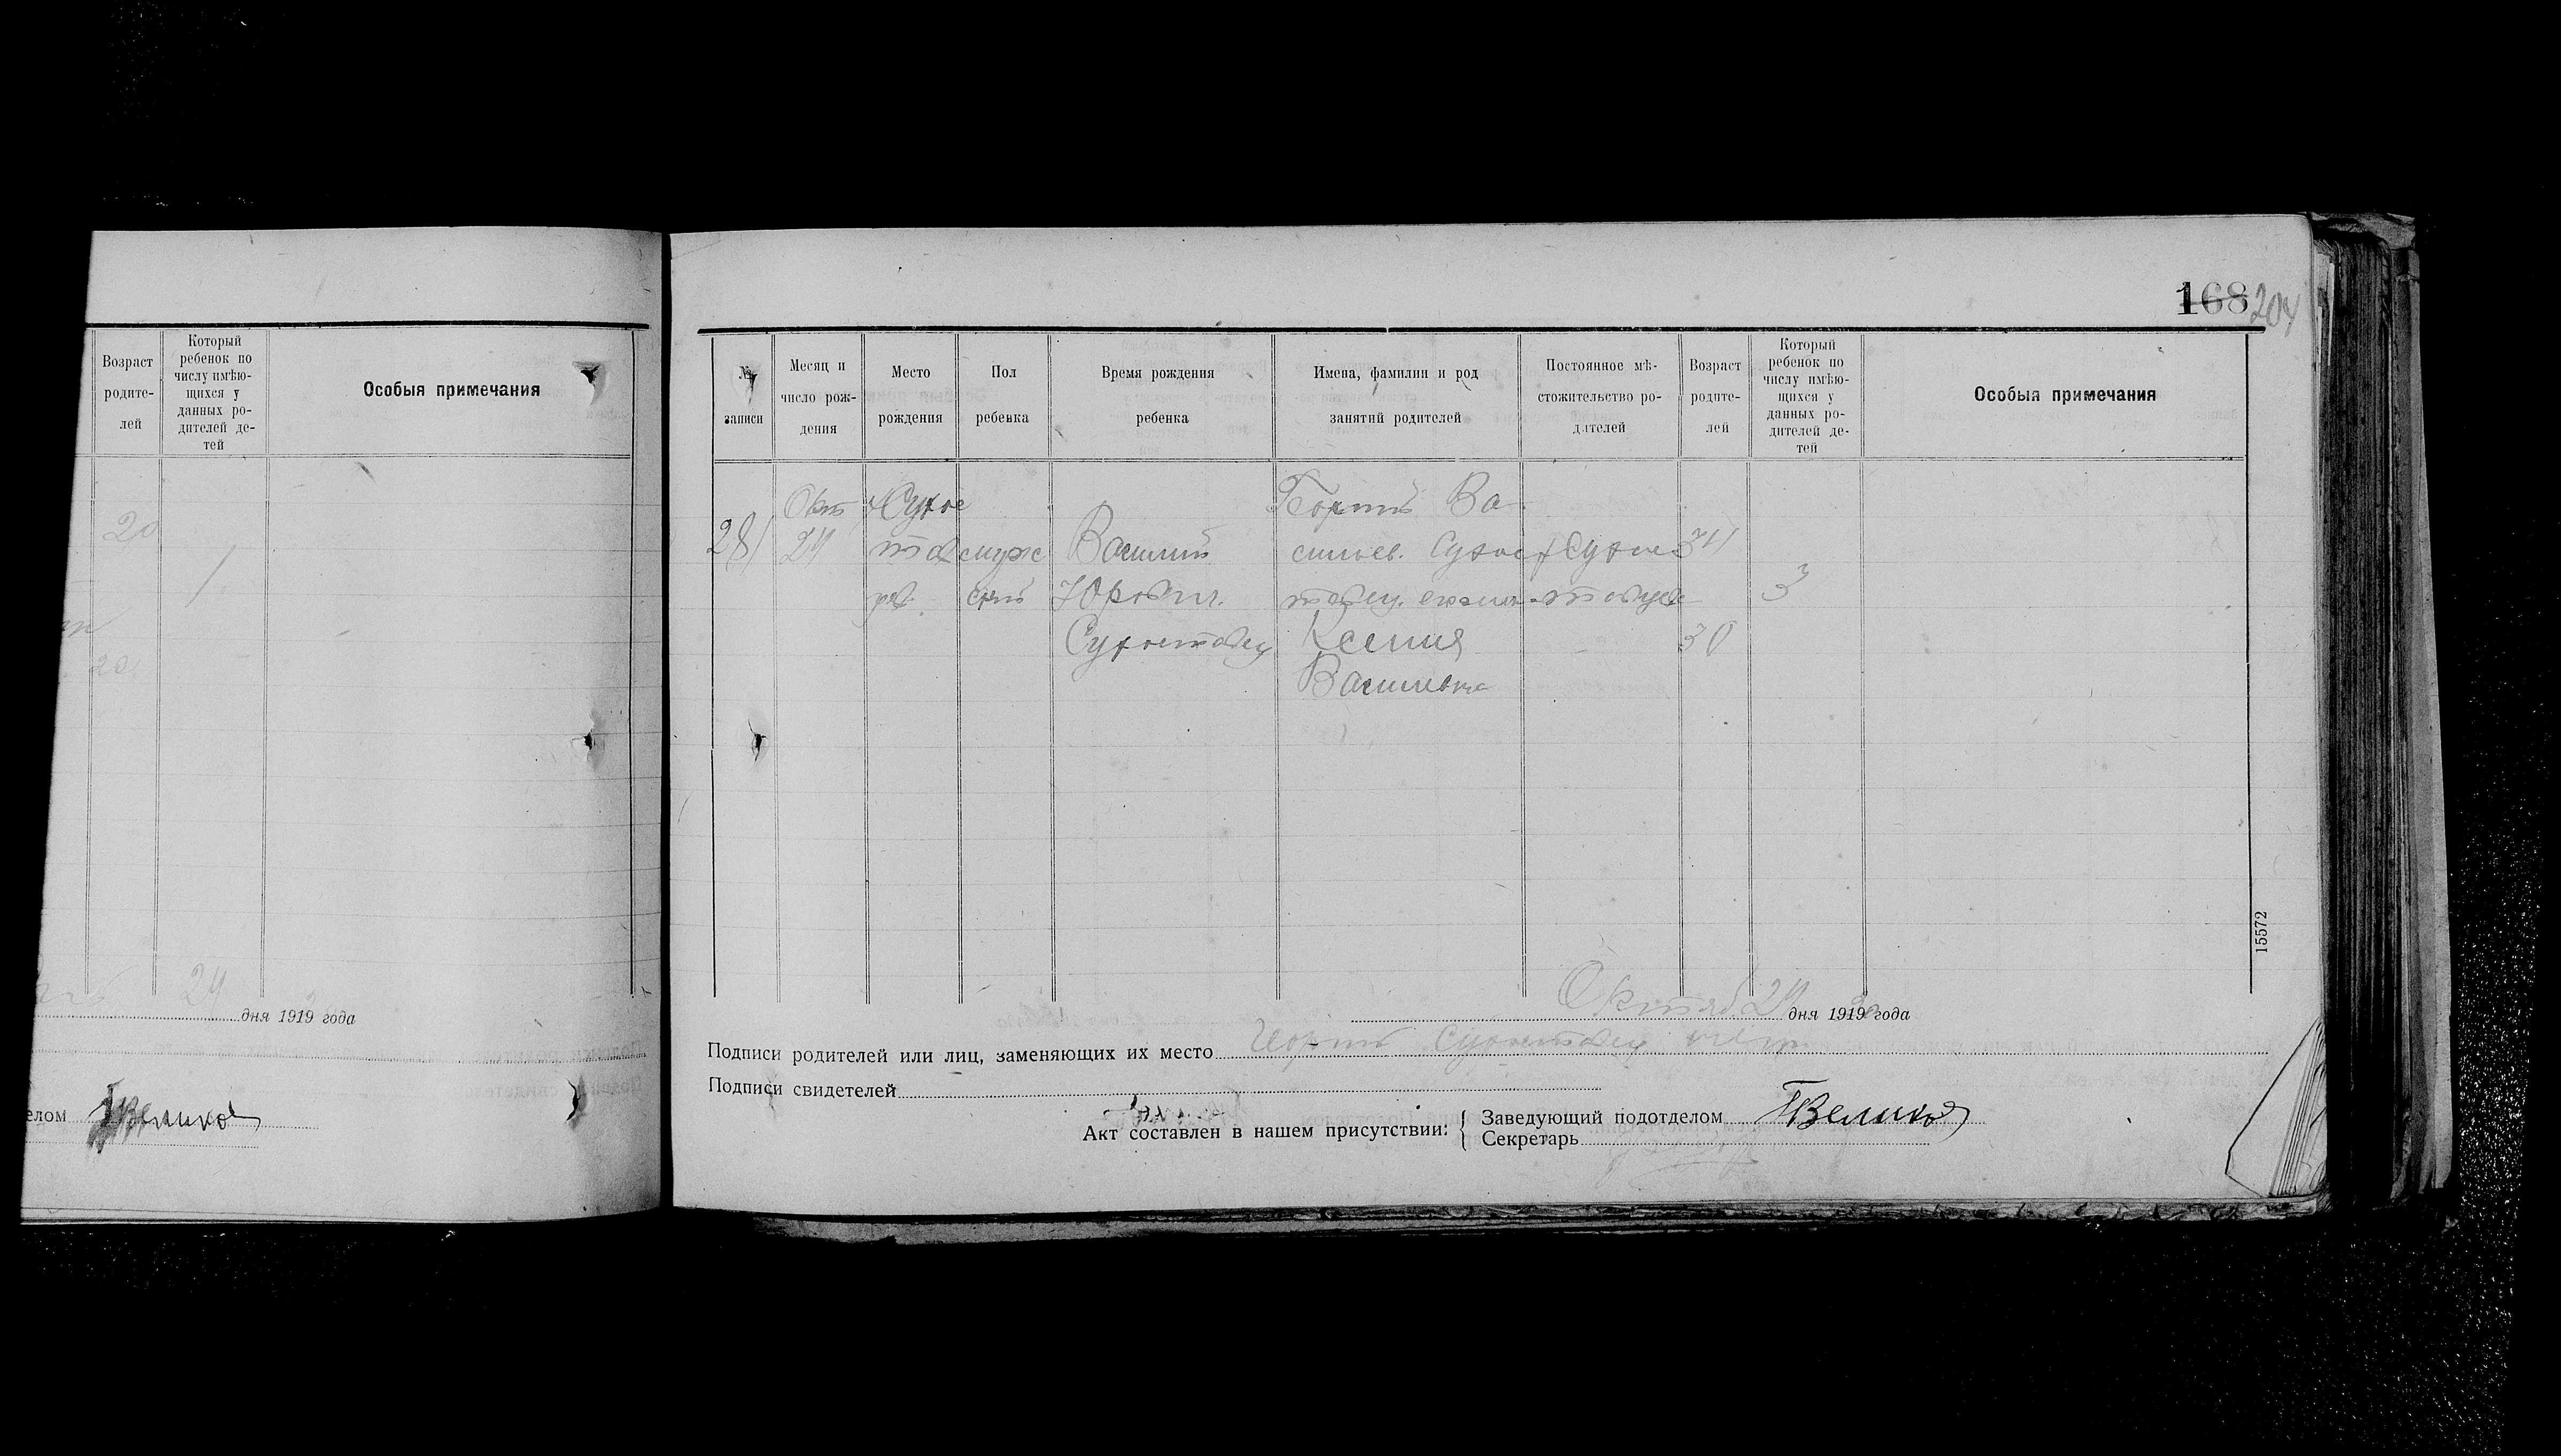 Возраст
родите-
лей
Который
ребенок по
числу имѣю-
щихся у
данных ро-
дителей де-
тей
Особыя примечания
20
1
20
24
дня 1919 года
елом
168 204
№
записи
Месяц и
число рож-
дения
Место
рождения
Пол
ребенка
Время рождения
ребенка
Имена, фамилии и род
занятий родителей
Постоянное мѣ-
стожительство ро-
дителей
Возраст
родите-
лей
Который
ребенок по
числу имѣю-
щихся у
данных ро-
дителей де-
тей
Особыя примечания
281
Окт
24
х Сухос
тав
муж
ской
Василий
Юрович.
Сухоставец
Ва
сильев. Сухос
тавец.
Ксения
Васильевна
34
30
3
Октяб 24 дня 1919 года
Подписи родителей или лиц, заменяющих их место Сухоставец
Подписи свидетелей
Акт составлен в нашем присутствии:
Заведующий подотделом
Секретарь
15572